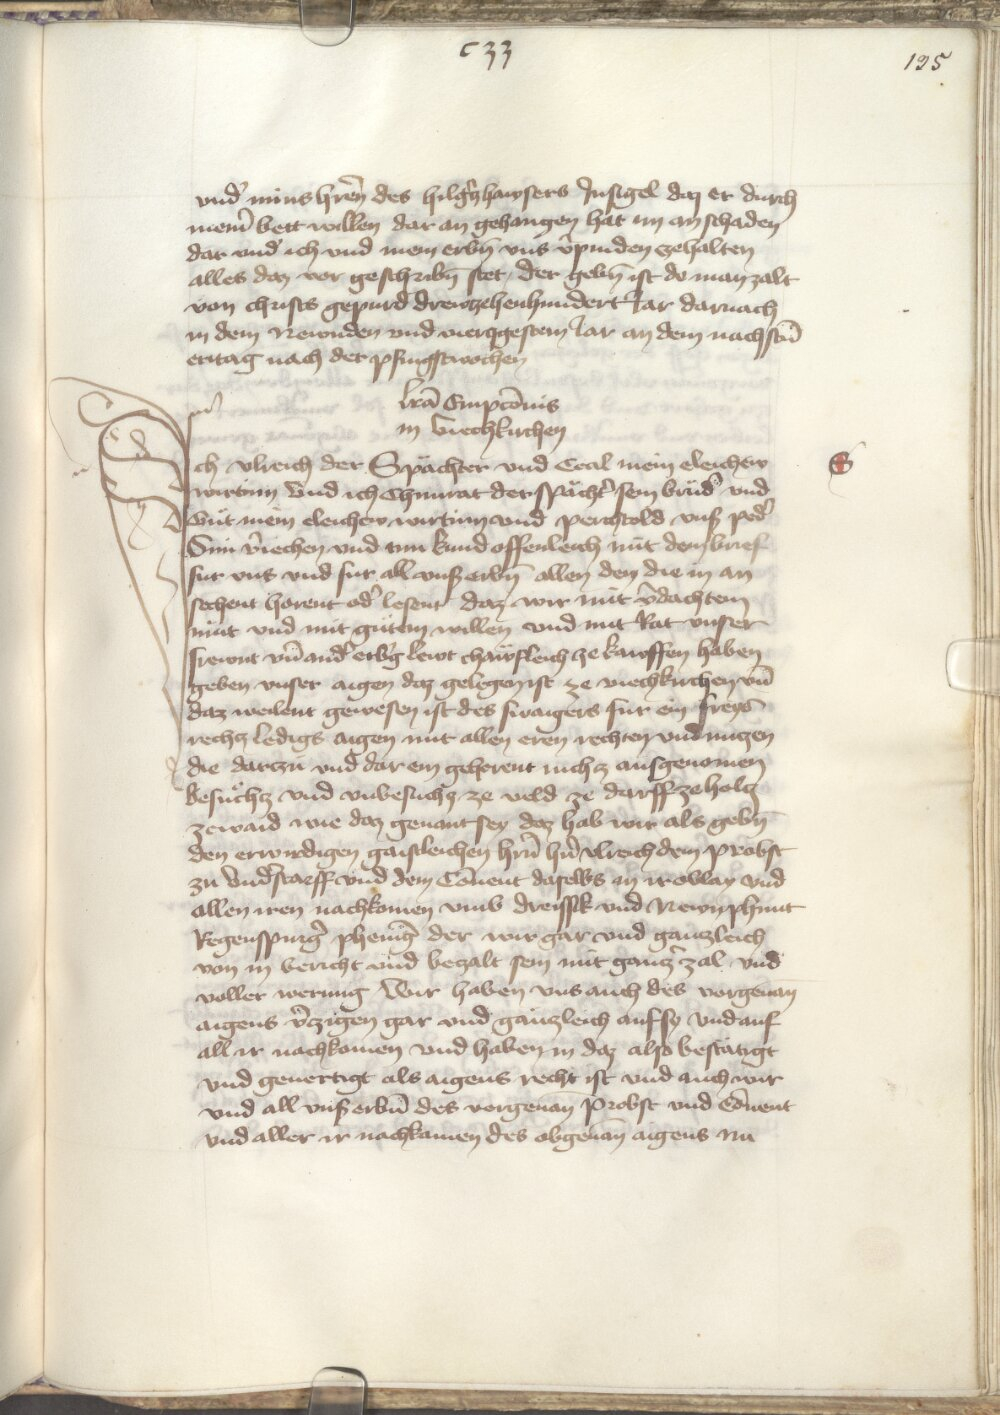 c33
125
vnd' mins hren̄ des hilg'tzhawsers Jnsigel daz er durch
meinr̄ bett willen dar an gehangen hat im an schaden
dar vnd' ich vnd mein erbn̄ vns v'pinden zehalten
alles daz vor geschribn̄ stet der gebn̄ ist do man zalt
von christs gepurd drewtzehenhundert Jar darnach
in dem Newnden vnd viertzgestem Jar an dem nachstn̄
eritag nach der pfingstwochen
lr̄a Empcōnis
in viechkirchen
Ich vlreich der Spächter vnd Ceal mein eleichew
wirtinn vnd ich Chunrat der spächt' sein brud' vnd
Gut mein eleichew wirtinn vnd perchtold vnss' ped'
Sun v'iechen vnd tun kund offenleich mit dem brief
fur vns vnd fur all vnss' erbn̄ allen den die in an
sechent horent od' lesent daz wir mit v'dachtem
mut vnd mit gutem willen vnd mit Rat vnser
frewnt vn̄ and' erb'g lewt chawfleich ze kawffen haben
geben vnser aigen daz gelegen ist ze viechkirchen vn̄
daz weilent gewesen ist des swaigers fur ein freys
rechtz ledigs aigen mit allen eren rechten vnd nutzen
die dartzu vnd dar ein gehorent nichtz ausgenomen
besuchtz vnd vnbesuchtz ze veld ze darff ze holtz
ze waid wie daz genant sey daz hab wir als gebn̄
den erwirdigen gaistleichen hrn̄ hn̄ vlreich dem Probst
zu Vnd'starff vnd dem Cōuent daselbs in irew lay vnd
allen iren nachkomen vmb dreissik vnd Newn phunt
Regenspurg' phenig' der wir gar vnd gantzleich
von in bericht vnd bezalt sein mit gantz' zal vnd
voller werung Wir haben vns auch des vorgenan̄
aigens v'zigen gar vnd gantzleich auf sy vnd auf
all ir nachkomen vnd haben in daz also bestatigt
vnd geuertigt als aigens recht ist vnd auch wir
vnd all vnss' erbn̄ des vorgenan̄ Probst vnd Cōuent
vnd aller ir nachkomen des obgenan̄ aigens nu